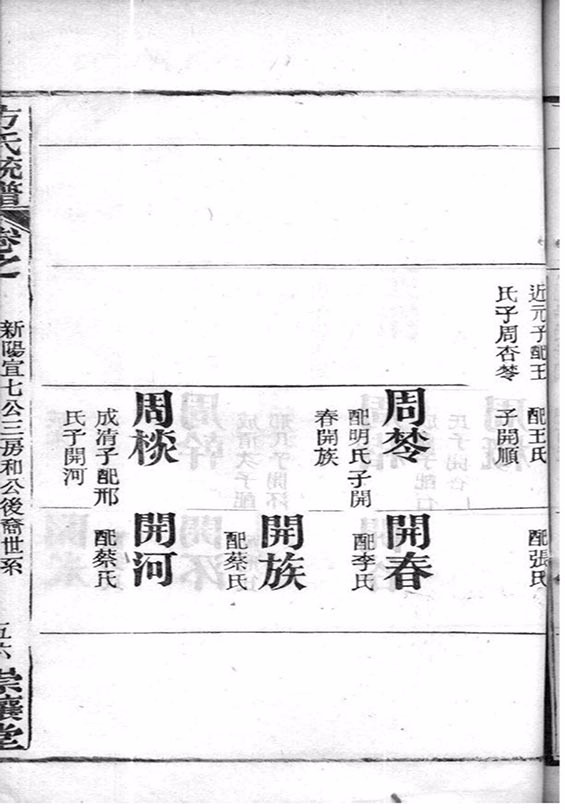 近元子配王
氏子周杏棽
配王氏
子開順
配張氏
周棽
配明氏子開
春開族
開春
配李氏
開族
配蔡氏
周棪
成清子配邢
氏子開河
開河
配蔡氏
方氏統譜
卷之
新陽宣七公三房和公後裔世系
五六
崇讓堂